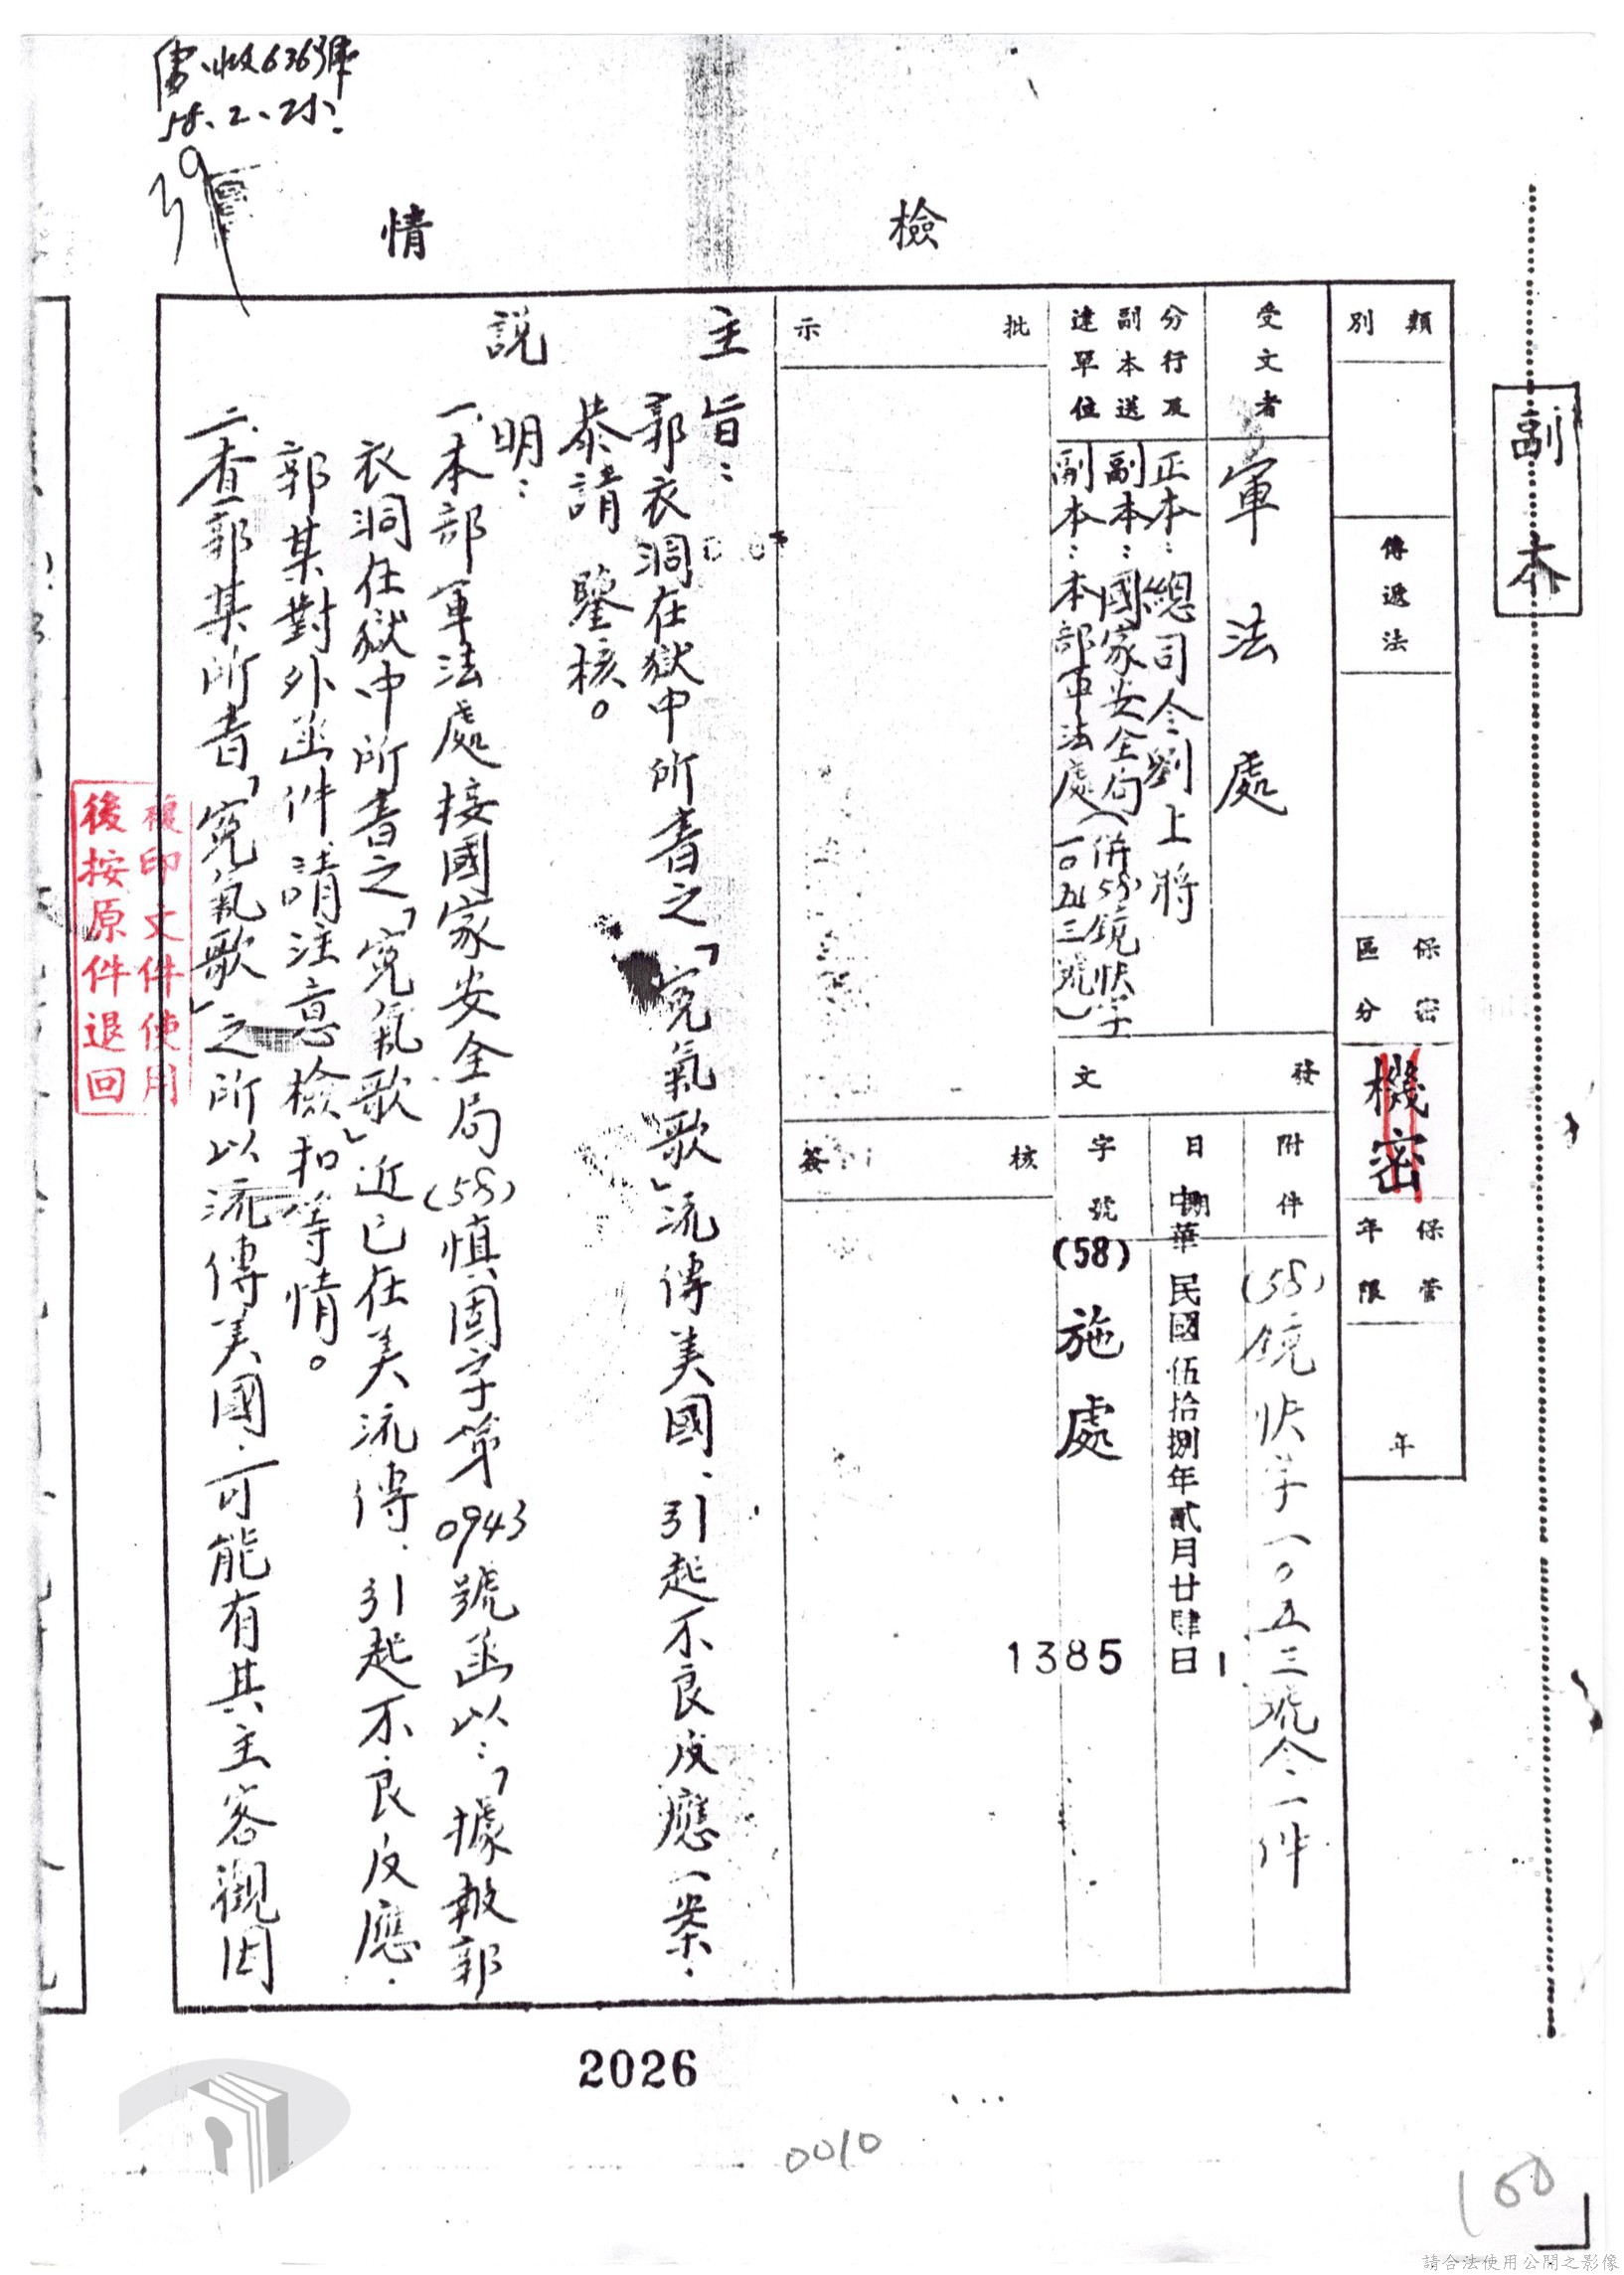 副本
檢情
類別
傳遞法
保密區分
機密
保管年限
年
受文者
軍法處
分行及副本送達單位
正本：總司令劉上將
副本：國家安全局
副本：本部軍法處（併58鏡快字一〇五三號）
發文
附件
(58)鏡快字一〇五三號令一件
日期
中華民國伍拾捌年貳月廿肆日
字號
(58)施處
1385
1
批示
核簽
主旨：
郭衣洞在獄中所書之「冤氣歌」流傳美國、引起不良反應一案、
恭請鑒核。
說明：
一、本部軍法處接國家安全局(58)慎固字第0943號函以：「據報郭
衣洞在獄中所書之「冤氣歌」近已在美流傳、引起不良反應、
郭某對外函件請注意檢扣等情。
二、查郭某所書「冤氣歌」之所以流傳美國、可能有其主客觀因
收6363號
58.2.25.
複印文件使用
後按原件退回
2026
0010
160
請合法使用公開之影像